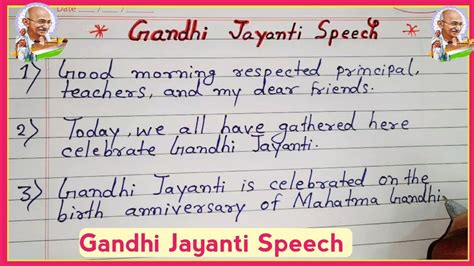 Date / /
* Gandhi Jayanti Speech *
1) Good morning respected principal,
teachers, and my dear friends.
2) Today, we all have gathered here
celebrate Gandhi Jayanti.
3) Gandhi Jayanti is celebrated on the
birth anniversary of Mahatma Gandhi
Gandhi Jayanti Speech